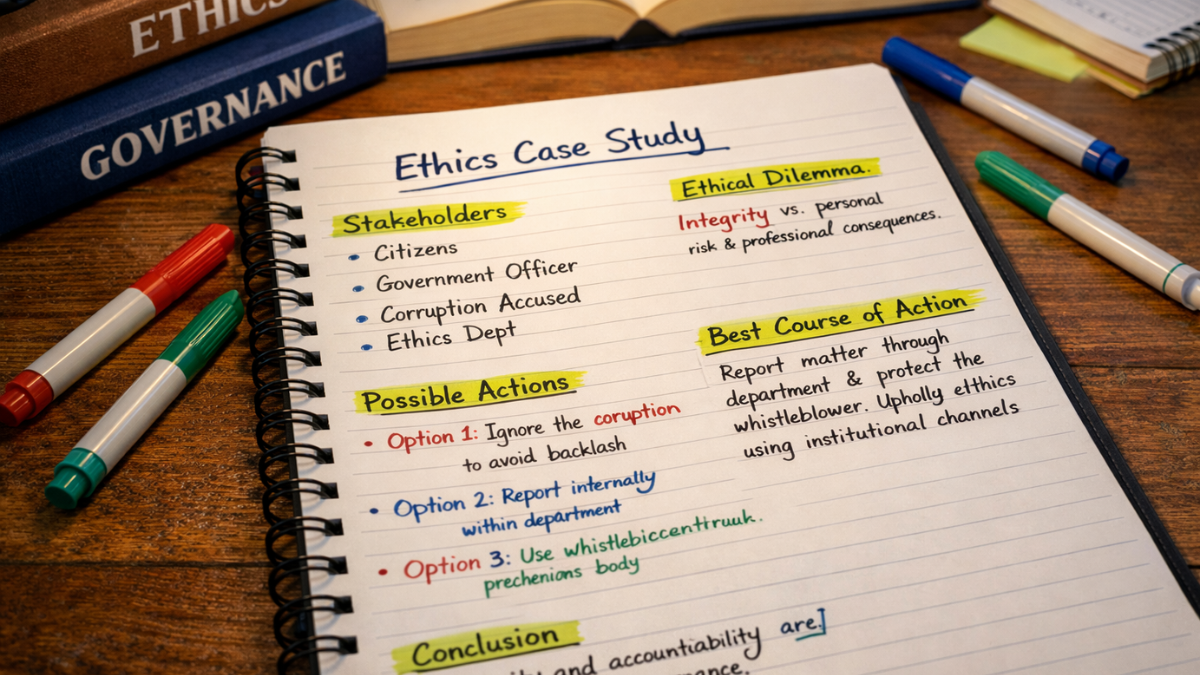 ETHICS
GOVERNANCE
Ethics Case Study
Stakeholders
• Citizens
• Government Officer
• Corruption Accused
• Ethics Dept
Possible Actions
• Option 1: Ignore the coruption
to avoid backlash
• Option 2: Report internally
within department
• Option 3: Use
body
Conclusion
and accountability are.
Ethical Dilemma.
Integrity vs. personal
risk & professional consequences.
Best Course of Action
Report matter through
department & protect the
whistleblower. Upholly elthics
using institutional channels